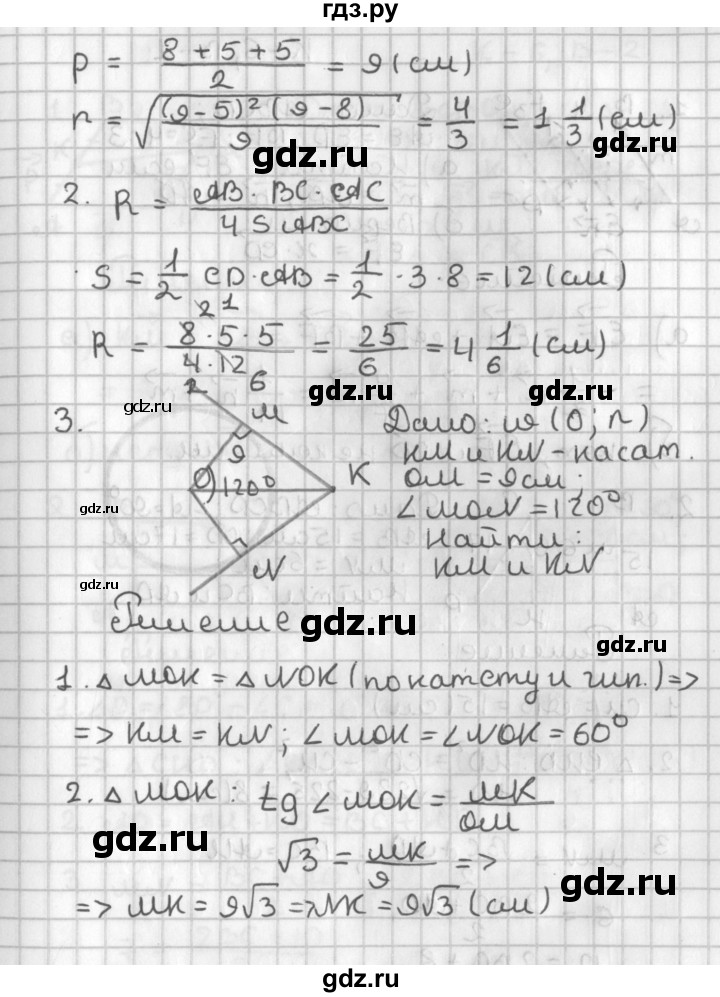 гдз.ру
p = (8 + 5 + 5)/2 = 9 (см)
r = √((9-5)² (9-8)/9) = 4/3 = 1 1/3 (см)
gdz.ru
gdz.ru
2. R = (AB · BC · AC)/(4 S ABC)
S = 1/2 CD · AB = 1/2 · 3 · 8 = 12 (см)
2 1
R = (8 · 5 · 5)/(4 · 12) = 25/6 = 4 1/6 (см)
2 6
gdz.ru
gdz.ru
gdz.ru
3. M
Дано: w (O; r)
9
KM и KN - касат.
O 120° K
OM = 9 см.
gdz.ru
∠MON = 120°
Найти:
N
KM и KN
gdz.ru
Решение
gdz.ru
gdz.ru
1. △ MOK = △ NOK (по катету и гип.) =>
=> KM = KN ; ∠ MOK = ∠ NOK = 60°
2. △ MOK : tg ∠ MOK = MK/OM
gdz.ru
gdz.ru
√3 = MK/9 =>
gdz.ru
=> MK = 9√3 => NK = 9√3 (см)
gdz.ru
gdz.ru
gdz.ru